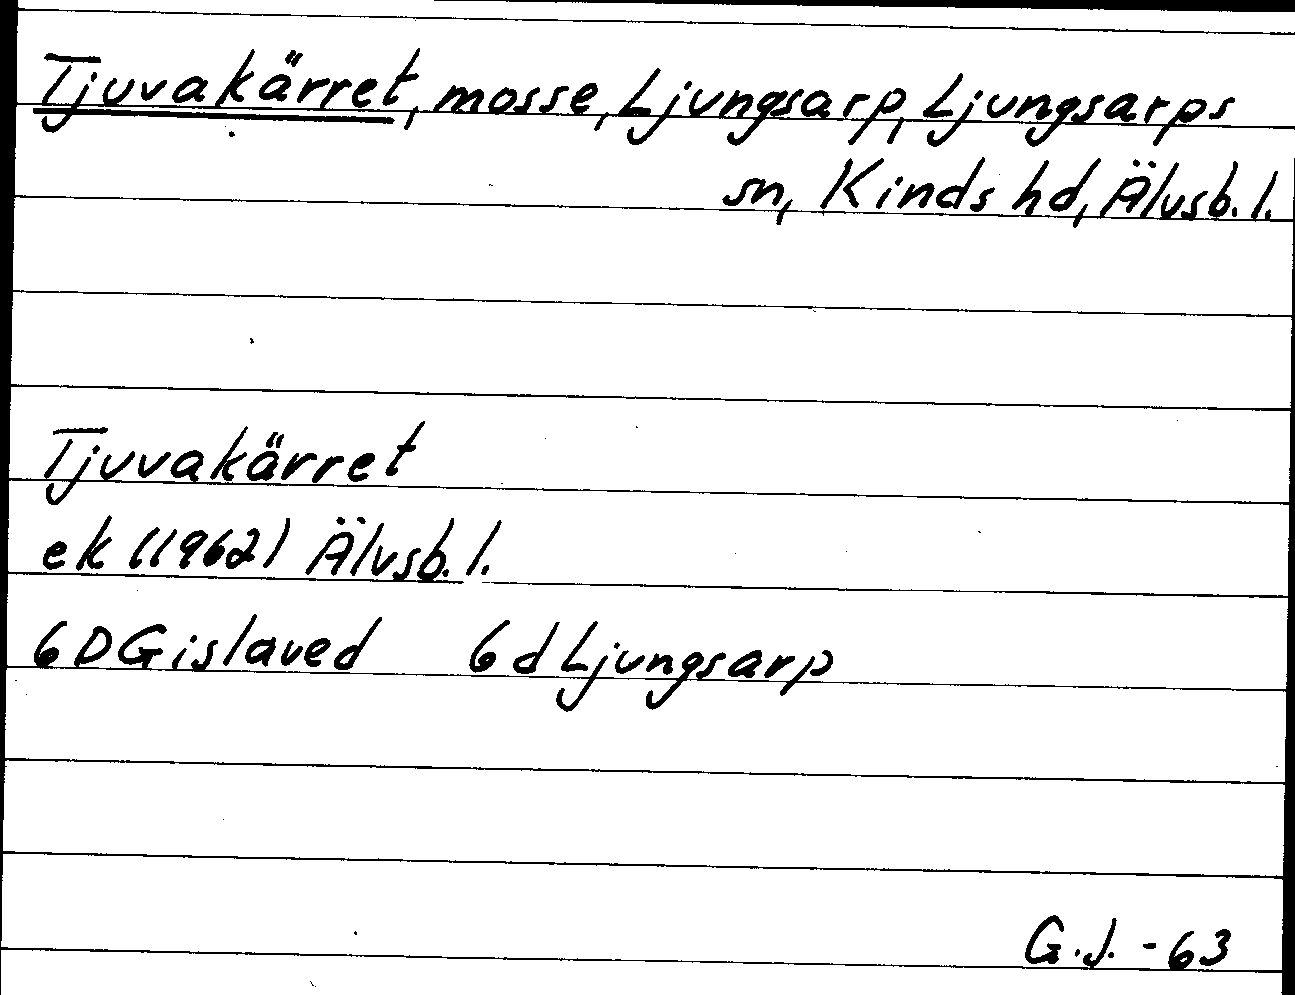 Tjuvakärret, mosse, Ljungsarp, Ljungsarps
sn, Kinds hd, Älvsb. l.
Tjuvakärret
ek (1962) Älvsb. l.
6D Gislaved 6d Ljungsarp
G.J. -63